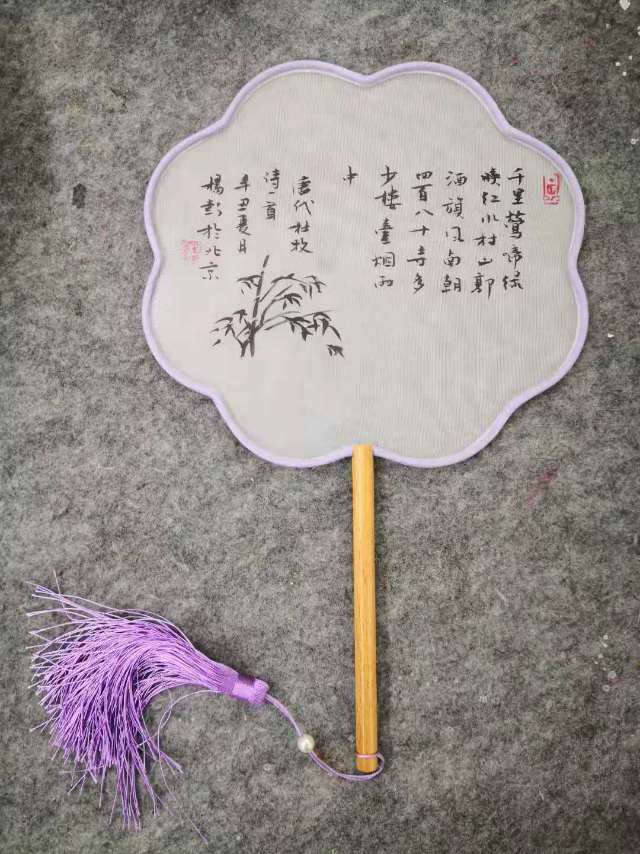 千里鶯啼绿
映红水村山郭
酒旗风南朝
四百八十寺多
少楼臺烟雨
中
唐代杜牧
诗一首
辛丑夏月
楊於北京